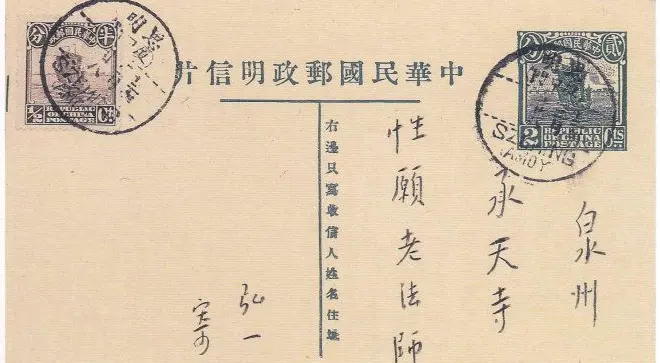 中華民國郵政明信片
貳分
中華民國郵政
2 Cts
REPUBLIC
OF CHINA
POSTAGE
SZEMING
(AMOY)
泉州
承天寺
性願老法師
右邊只寫收信人姓名住址
弘一
寄
半分
中華民國郵政
1/2 Ct
REPUBLIC
OF CHINA
POSTAGE